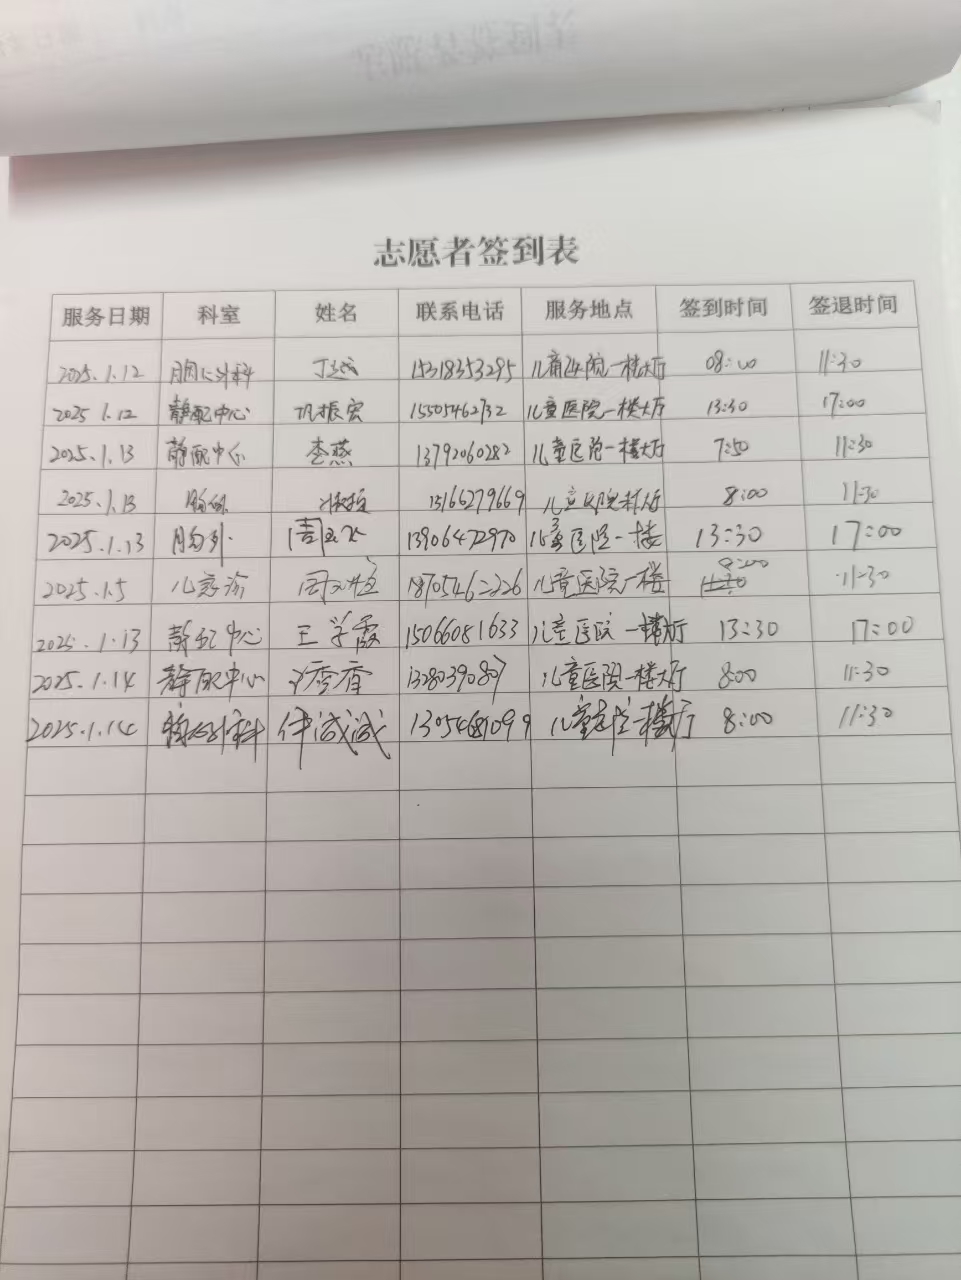 志愿者签到表
服务日期 科室 姓名 联系电话 服务地点 签到时间 签退时间
2025.1.12 胸心外科 丁 15318353295 儿童医院一楼大厅 08:00 11:30
2025 1.12 静配中心 巩振宏 15505462732 儿童医院一楼大厅 13:30 17:00
2025.1.13 静配中心 李燕 13792060282 儿童医院一楼大厅 7:50 11:30
2025.1.13 15166279669 儿童医院 8:00 11:30
2025.1.13 胸外 周 13906472970 儿童医院一楼 13:30 17:00
2025.1.5 儿 诊 周 儿童医院一楼 8:00 11:30
2025.1.13 静配中心 王学霞 15066081633 儿童医院一楼大厅 13:30 17:00
2025.1.14 静配中心 秀香 13280390807 儿童医院一楼大厅 8:00 11:30
2025.1.14 外科 诚诚 儿童 楼 厅 8:00 11:30